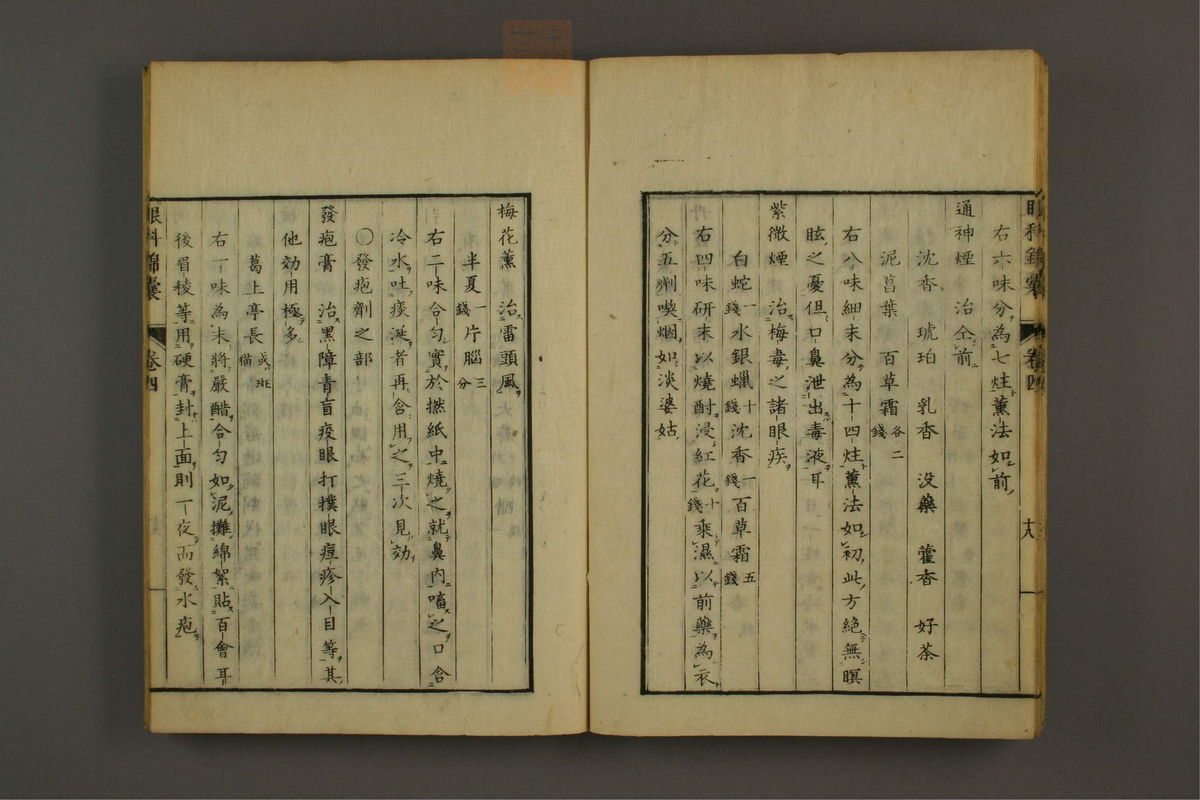 右六味分為七炷薫法如前
通神煙　治仝前
沈香　琥珀　乳香　没藥　藿香　好茶
泥菖葉　百草霜各二錢
右八味細末分為十四炷薫法如初此方絶無瞑
眩之憂但口鼻泄出毒液耳
紫微煙　治梅毒之諸眼疾
白蛇一錢水銀蠟十錢沈香一錢百草霜五錢
右四味研末以燒酎浸紅花十錢乘濕以前藥為衣
分五劑喫烟如淡婆姑
眼科錦囊　卷四
梅花薫　治雷頭風
半夏一錢片腦三分
右二味合匀實於撚紙中燒之就鼻内嗅之口含
冷水吐痰涎者再含用之三次見効
〇發疱劑之部
發疱膏　治黒障青盲疫眼打撲眼痘疹入目等其
他効用極多
葛上亭長或斑猫
右一味為末將嚴醋合匀如泥攤綿絮貼百會耳
後眉稜等用硬膏封上面則一夜而發水疱
眼科錦囊　卷四